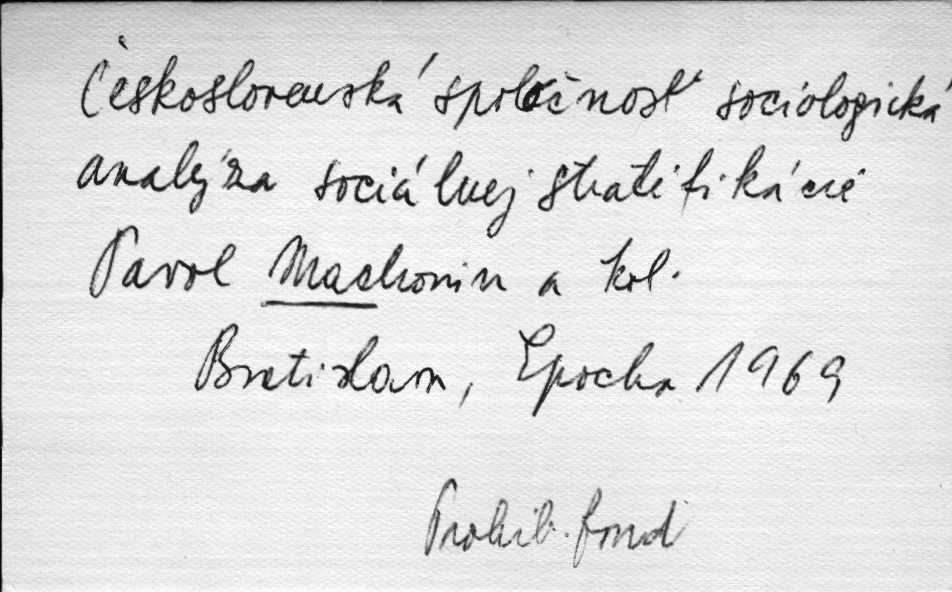 Československá spoločnosť sociologická
analýza sociálnej stratifikácie
Pavol Machonin a kol.
Bratislava, Epocha 1969
Prohib. fond